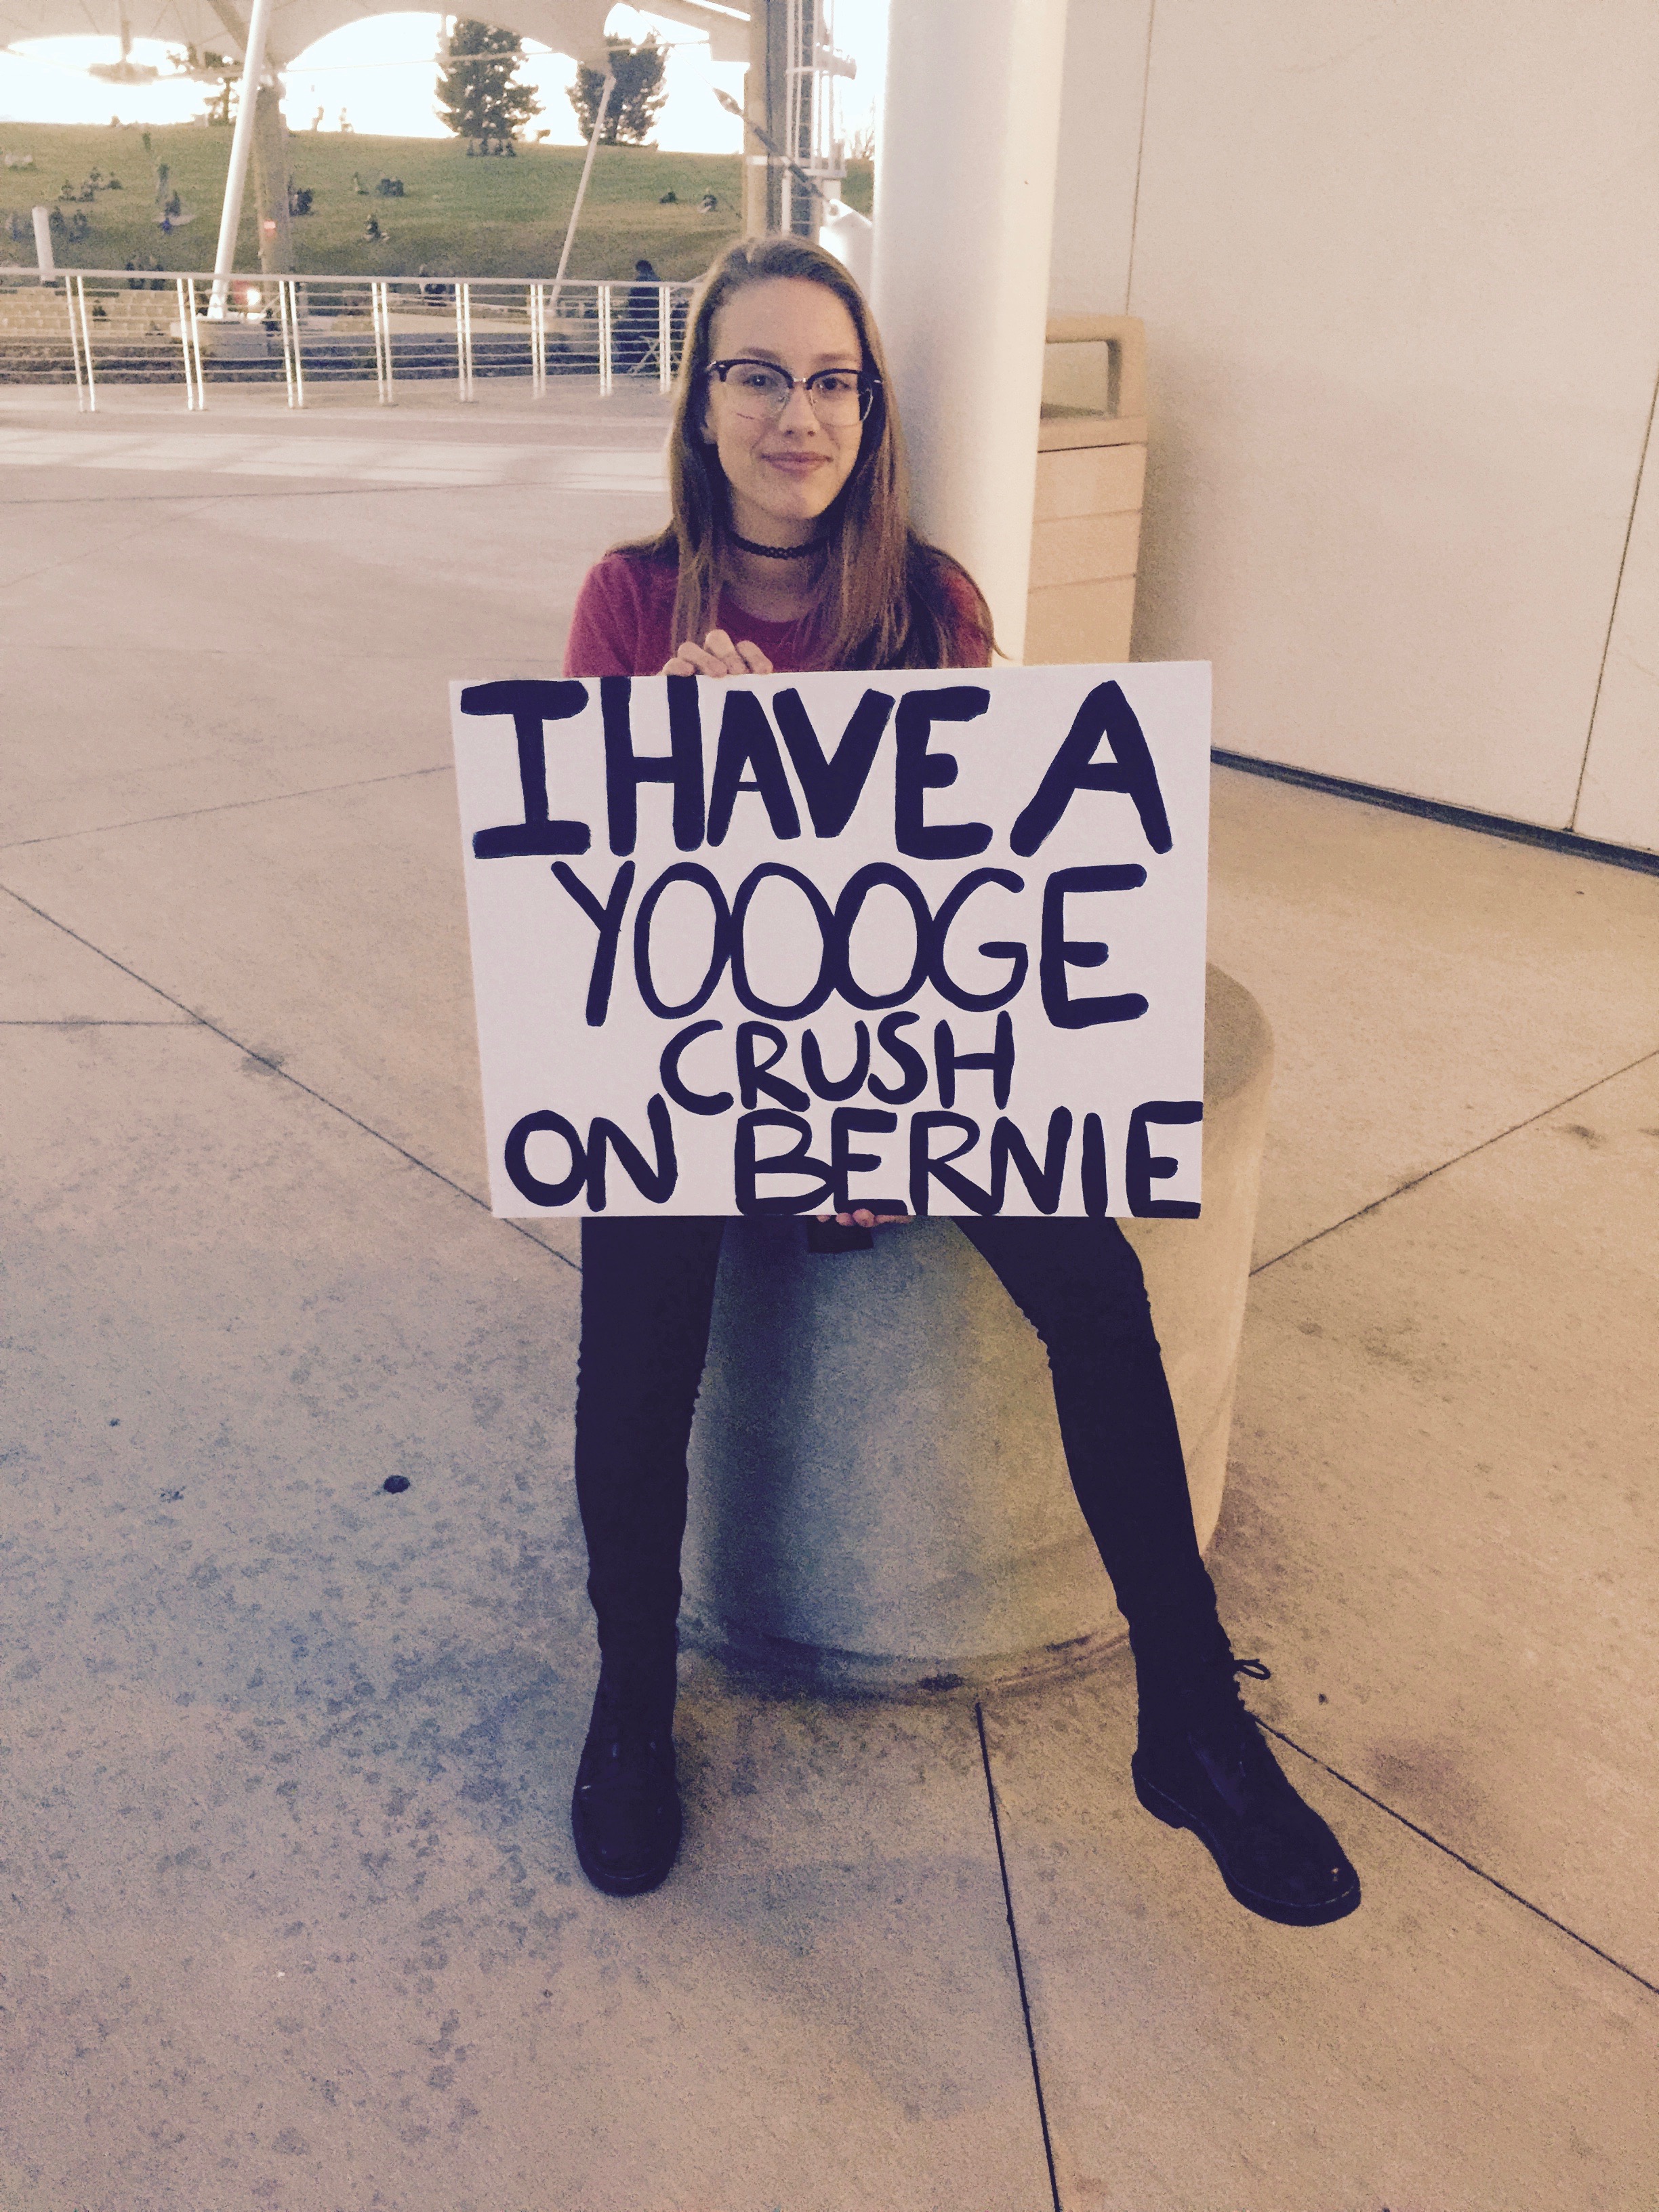 I HAVE A
YOOOGE
CRUSH
ON BERNIE